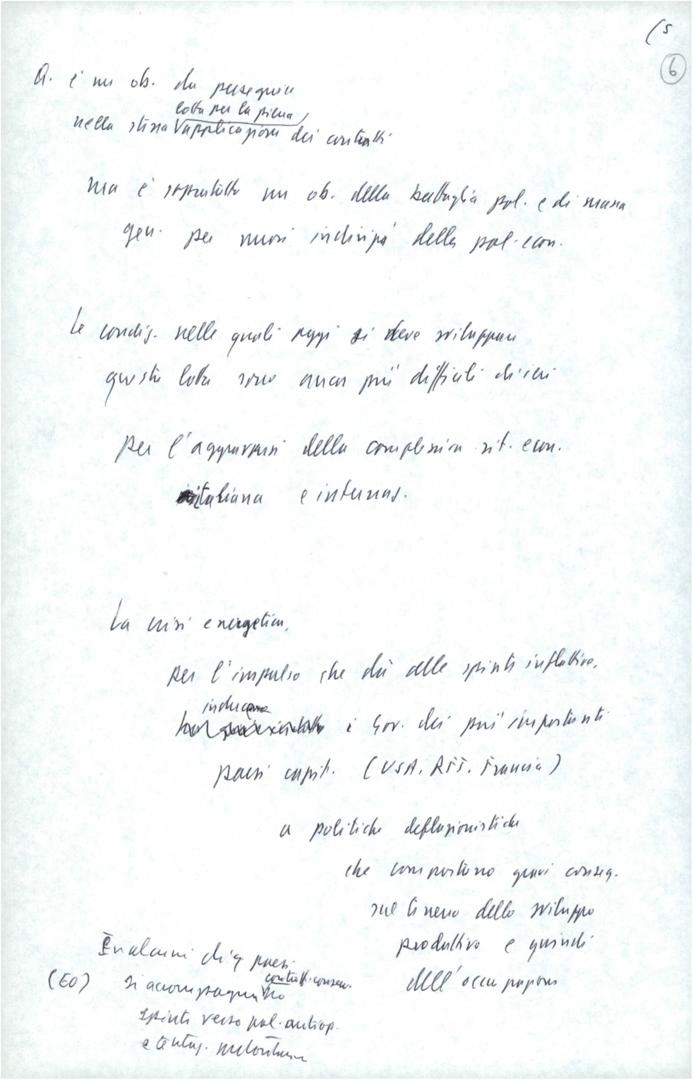 (5
6
Q. è un ob. da perseguire
lotta per la piena
nella stessa applicazione dei contratti
ma è soprattutto un ob. della battaglia pol. e di massa
gen. per nuovi indirizzi della pol. econ.
Le condiz. nelle quali oggi si deve sviluppare
questa lotta sono ancor più difficili di ieri
per l'aggravarsi della complessiva sit. econ.
italiana e internaz.
La crisi energetica,
per l'impulso che dà alle spinte inflattive,
inducono
i Gov. dei più importanti
paesi capit. (USA, RFT, Francia)
a politiche deflazionistiche
che comportano gravi conseg.
sul terreno dello sviluppo
produttivo e quindi
dell'occupazione
In alcuni di q paesi
(EO) si accompagna no
spinte verso pol. antiop.
e tentaz.